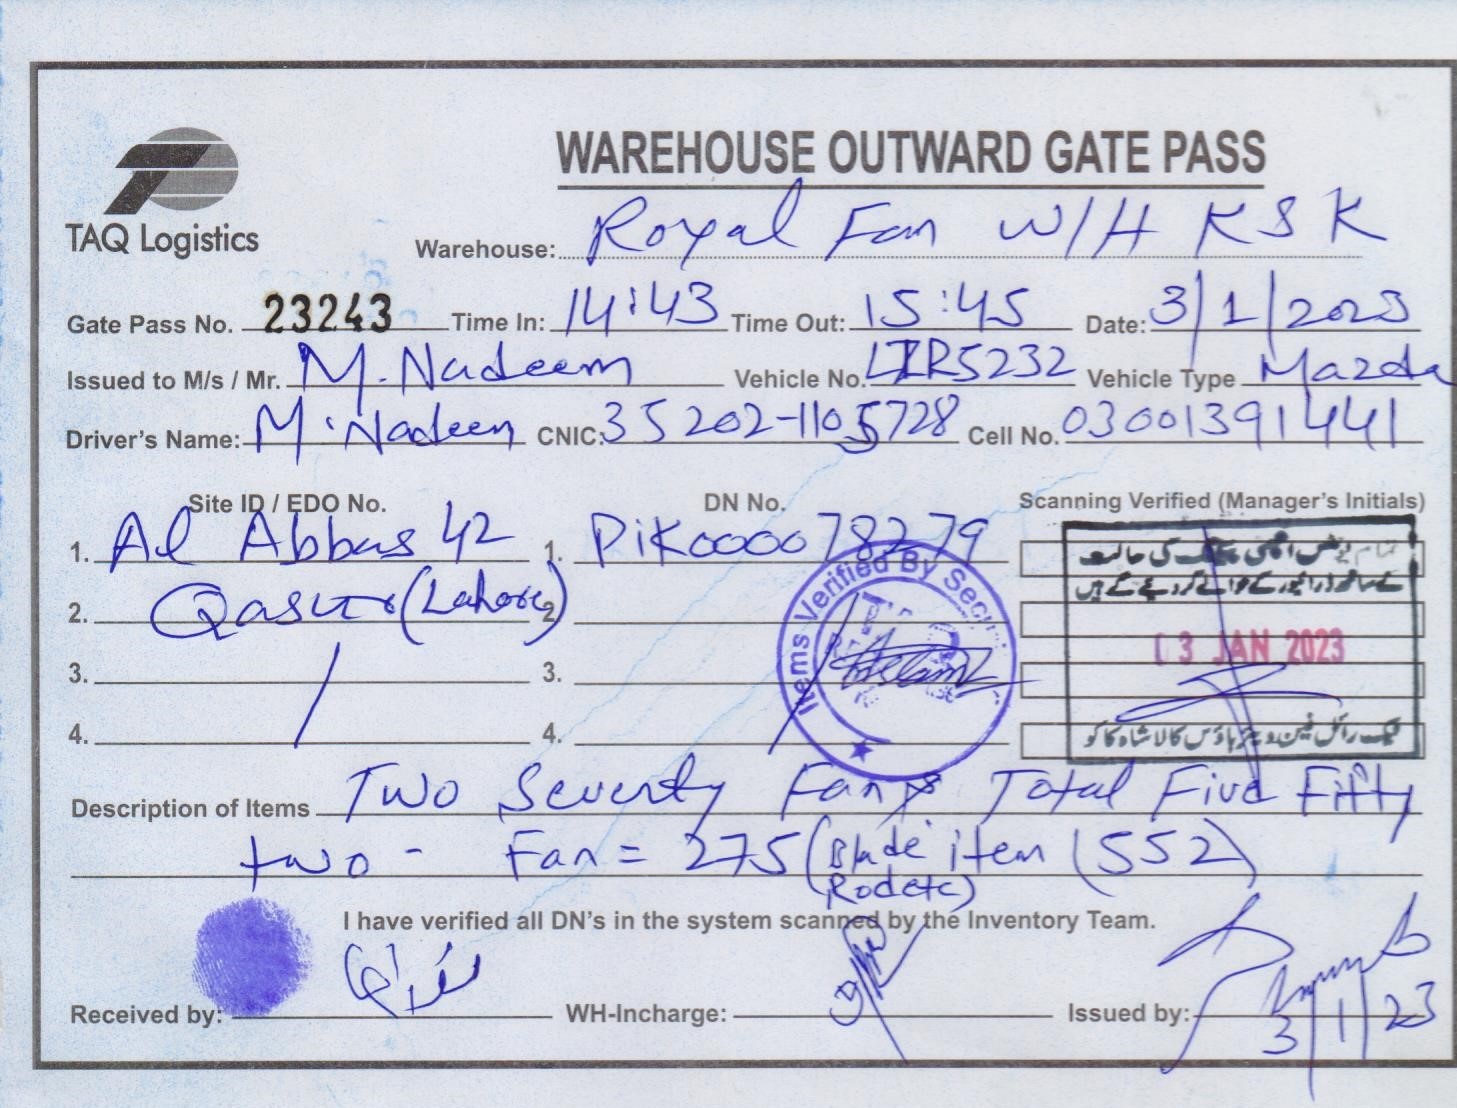 WAREHOUSE OUTWARD GATE PASS
TAQ Logistics
Warehouse: Royal Fan W/H KSK
Gate Pass No. 23243 Time In: 14:43 Time Out: 15:45 Date: 3/1/2023
Issued to M/s / Mr. M. Nadeem Vehicle No. 5232 Vehicle Type Mazda
Driver's Name: M. Nadeem CNIC: 35202-1105728 Cell No. 03001391441
Site ID / EDO No. DN No. Scanning Verified (Manager's Initials)
1. Al Abbas 42 1. PiK000078279
2. Qasur (Lahore) 2
3. 3.
4. 4.
Items Verified By
تمام یونٹس اچھی پیکنگ کی حالت
کے ساتھ ڈرائیور کے حوالے کر دیے گئے ہیں
03 JAN 2023
ٹیک رائل فین ویئر ہاؤس کالا شاہ کاکو
Description of Items Two Seventy Fans Total Five Fifty
two - Fan = 275 (Blade item (552)
Rod etc)
I have verified all DN's in the system scanned by the Inventory Team.
Received by: WH-Incharge: Issued by:
3/1/23